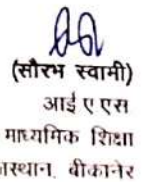 (सौरभ स्वामी)
आई ए एस
माध्यमिक शिक्षा
जस्थान, बीकानेर